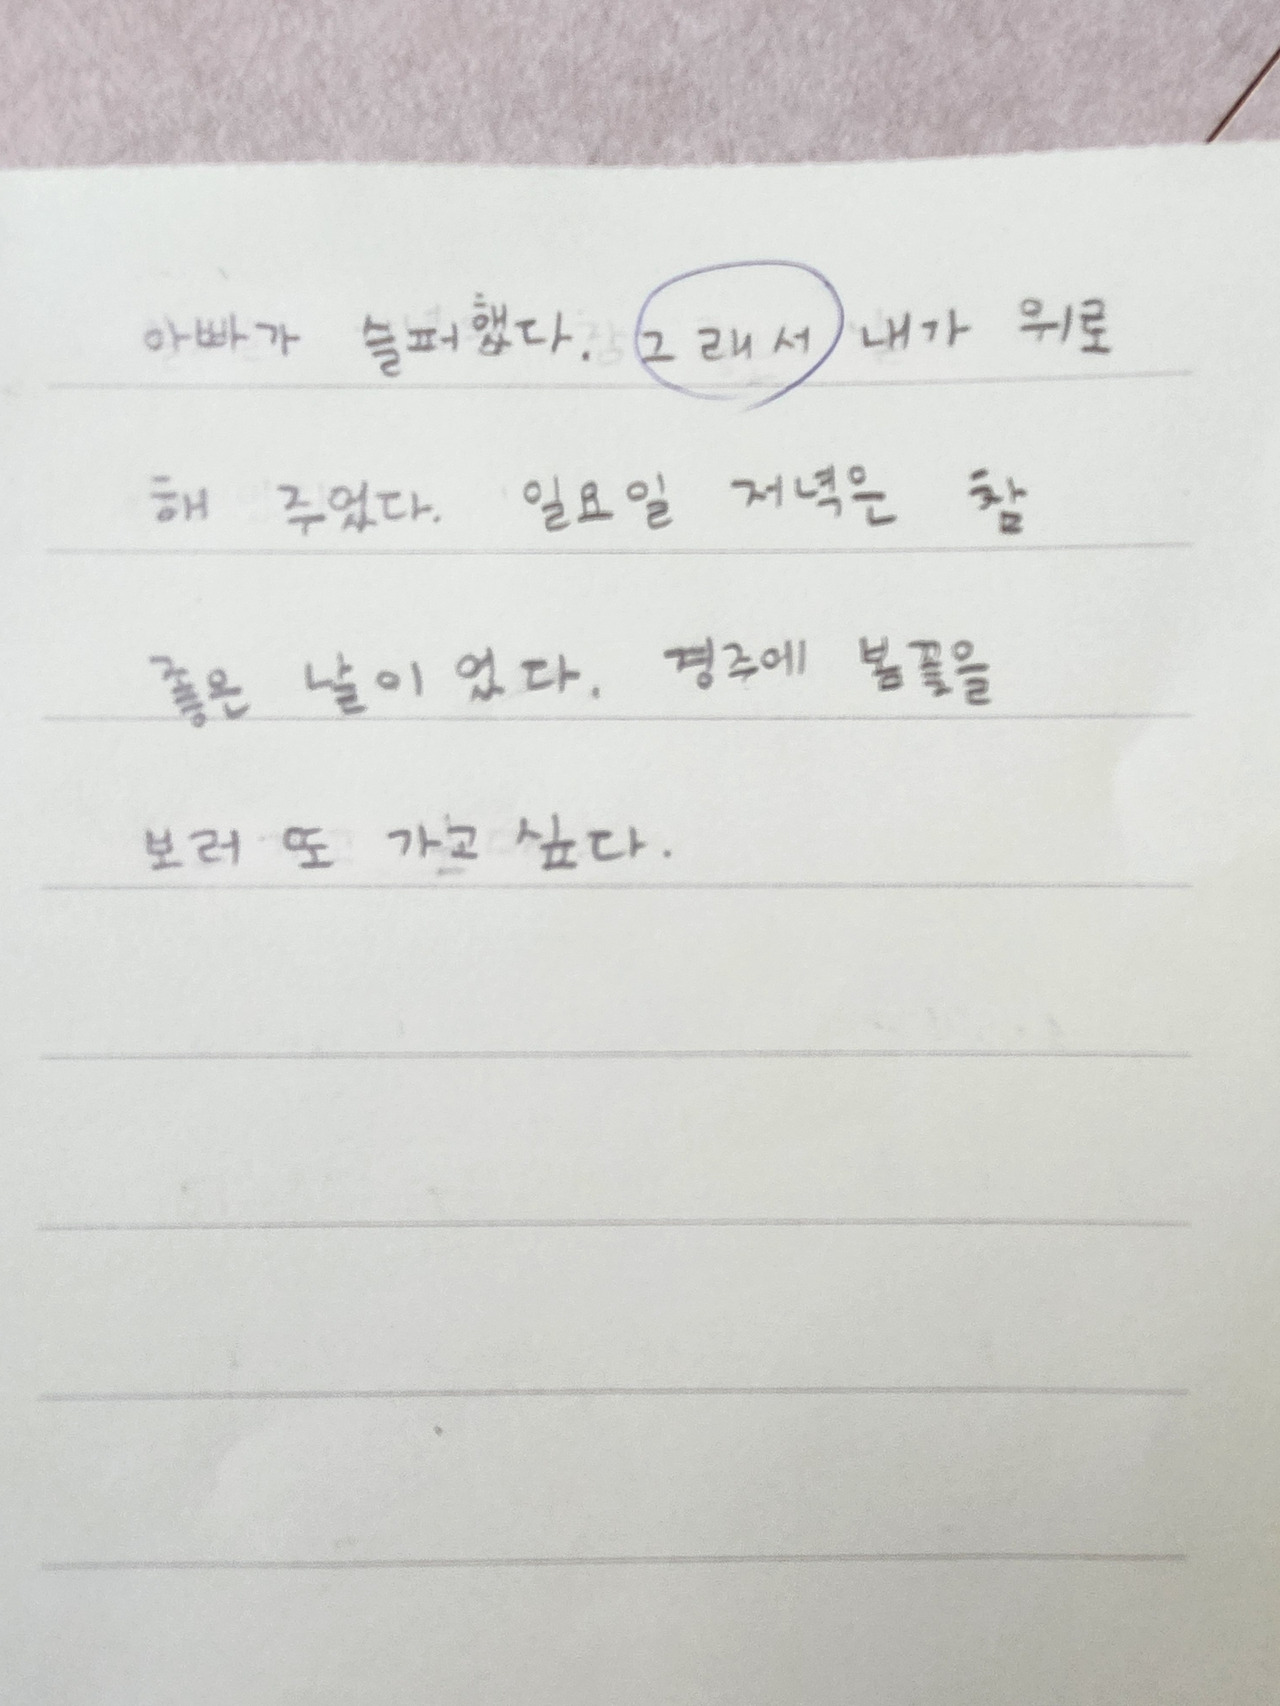 아빠가 슬퍼했다. 그래서 내가 위로
해 주었다. 일요일 저녁은 참
좋은 날이었다. 경주에 봄꽃을
보러 또 가고 싶다.